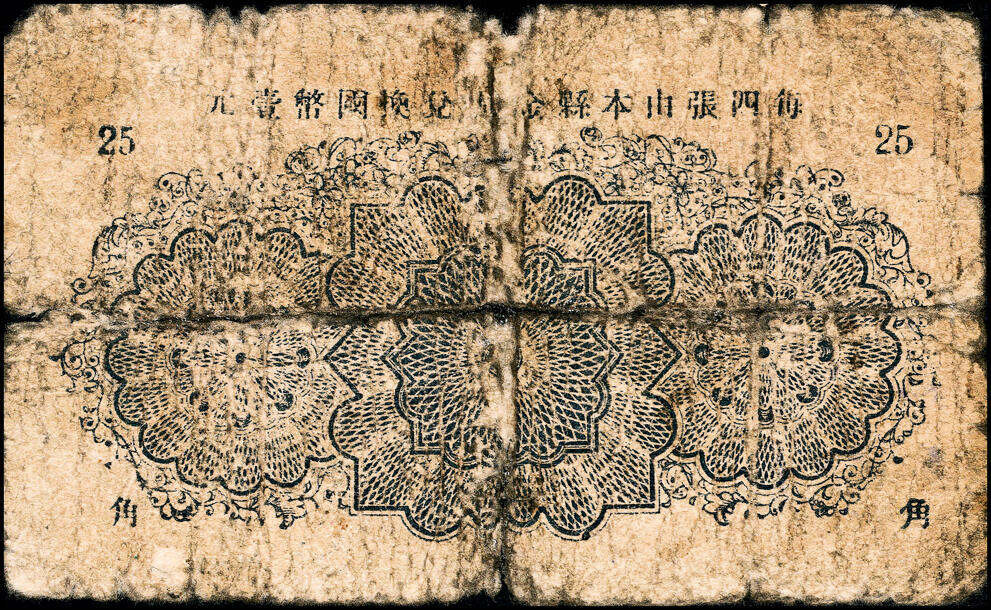 每四張由本縣金兌換國幣壹元
25 25
角 角